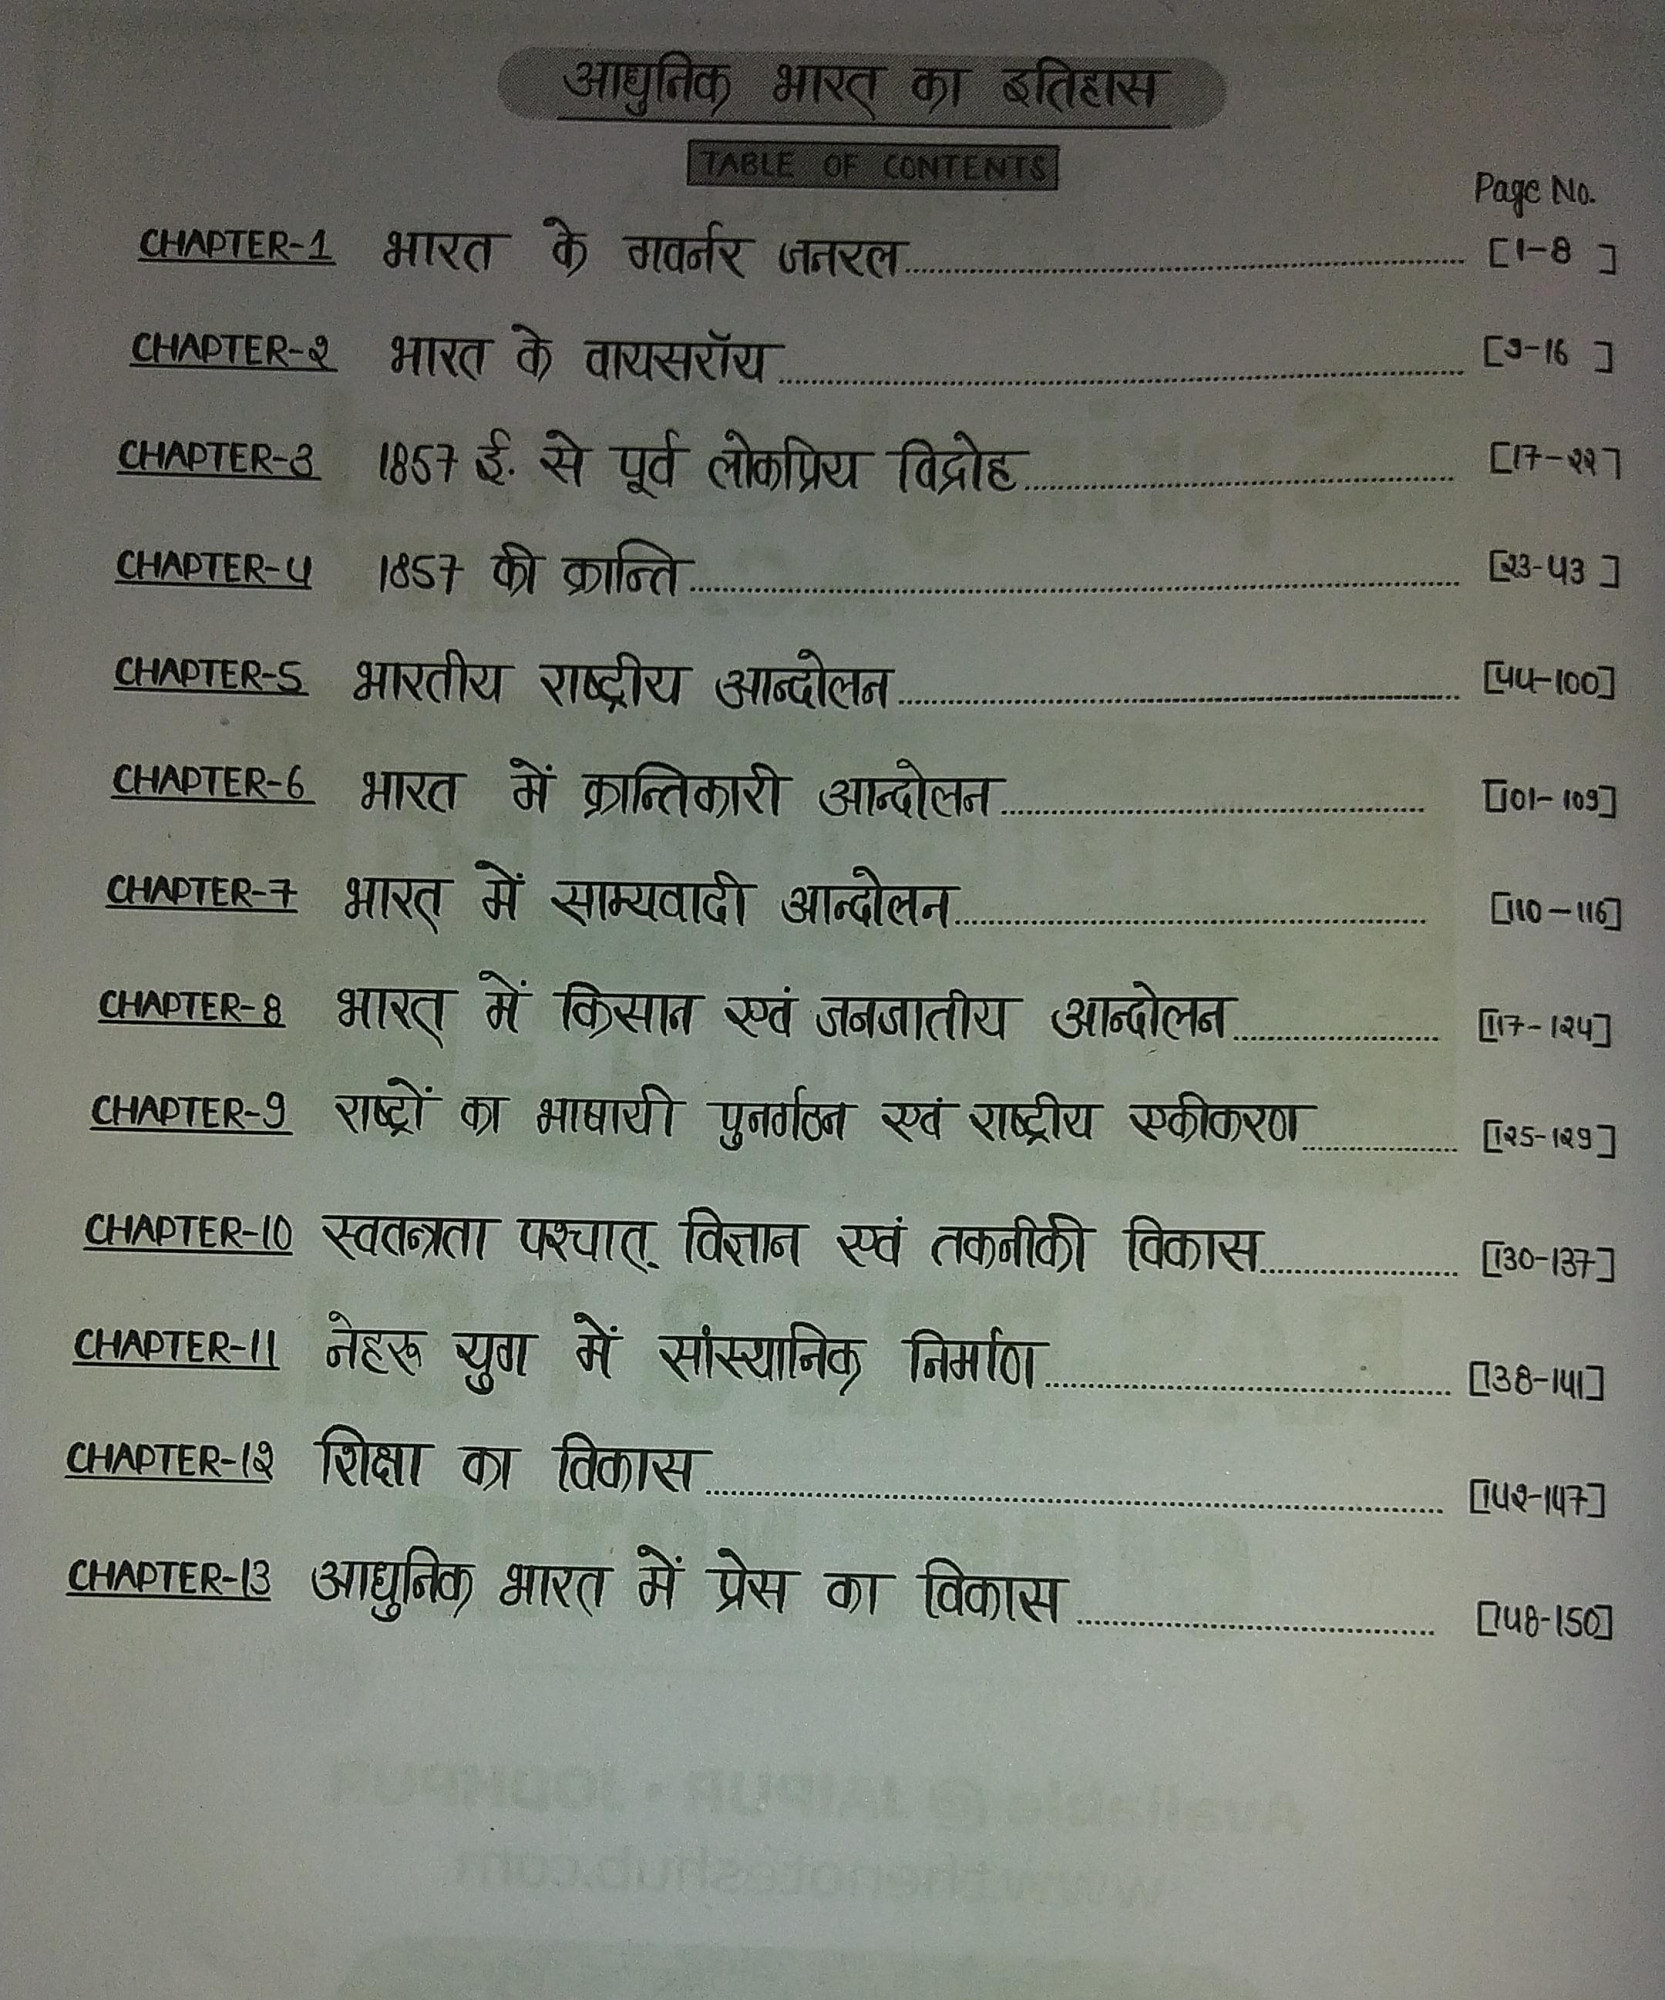 आधुनिक भारत का इतिहास
TABLE OF CONTENTS
Page No.
CHAPTER-1 भारत के गवर्नर जनरल [1-8]
CHAPTER-2 भारत के वायसरॉय [9-16]
CHAPTER-3 1857 ई. से पूर्व लोकप्रिय विद्रोह [17-22]
CHAPTER-4 1857 की क्रान्ति [23-43]
CHAPTER-5 भारतीय राष्ट्रीय आन्दोलन [44-100]
CHAPTER-6 भारत में क्रान्तिकारी आन्दोलन [101-109]
CHAPTER-7 भारत में साम्यवादी आन्दोलन [110-116]
CHAPTER-8 भारत में किसान एवं जनजातीय आन्दोलन [117-124]
CHAPTER-9 राष्ट्रों का भाषायी पुनर्गठन एवं राष्ट्रीय एकीकरण [125-129]
CHAPTER-10 स्वतन्त्रता पश्चात् विज्ञान एवं तकनीकी विकास [130-137]
CHAPTER-11 नेहरू युग में सांस्थानिक निर्माण [138-141]
CHAPTER-12 शिक्षा का विकास [142-147]
CHAPTER-13 आधुनिक भारत में प्रेस का विकास [148-150]
Available @ JAIPUR • JODHPUR
www.thenoteshub.com